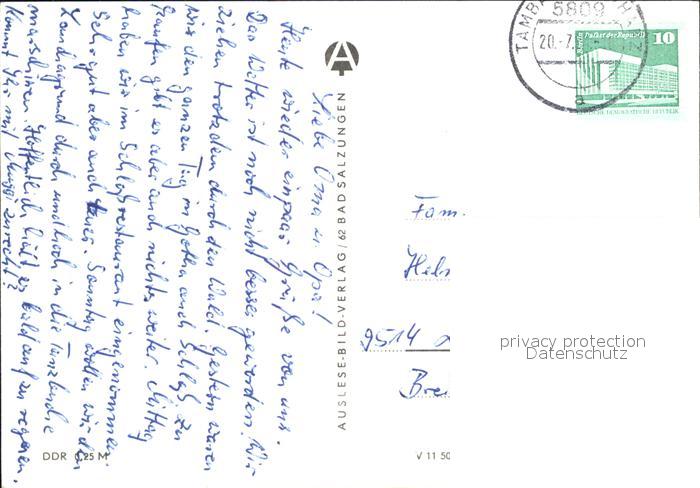 Liebe Oma u. Opa!
Heute wieder ein paar Grüße von uns.
Das Wetter ist noch nicht besser geworden. Wir
ziehen trotzdem durch den Wald. Gestern waren
wir den ganzen Tag in Gotha auch Schloß zu
kaufen gibt es aber auch nichts weiter. Mittag
haben wir im Schloßrestaurant eingenommen.
Sehr gut aber auch teuer. Sonntag wollen wir den
durch und hoch in die Tanzbuche
marschieren. Hoffentlich hört es bald auf zu regnen.
Kommt Ihr mit zurecht?
AUSLESE-BILD-VERLAG/62 BAD SALZUNGEN
DDR 0,25 M
V 11 50
TAMBA
5809
20.-7.
a
Berlin Palast der Republik
10
DEUTSCHE DEMOKRATISCHE REPUBLIK
Fam.
9514
privacy protection
Datenschutz